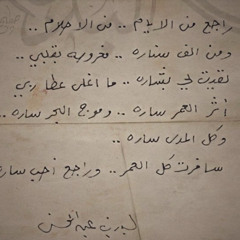 راجع من الايام .. من الاحلام ..
ومن الف سناره .. مغروسة بقلبي ..
لقيت لي بشاره .. ما اغلى عطا ربي
أثر العمر ساره .. وموج البحر ساره ..
وكل المدى ساره ..
سافرت كل العمر .. وراجع أحب ساره
لبدر بن عبد المحسن